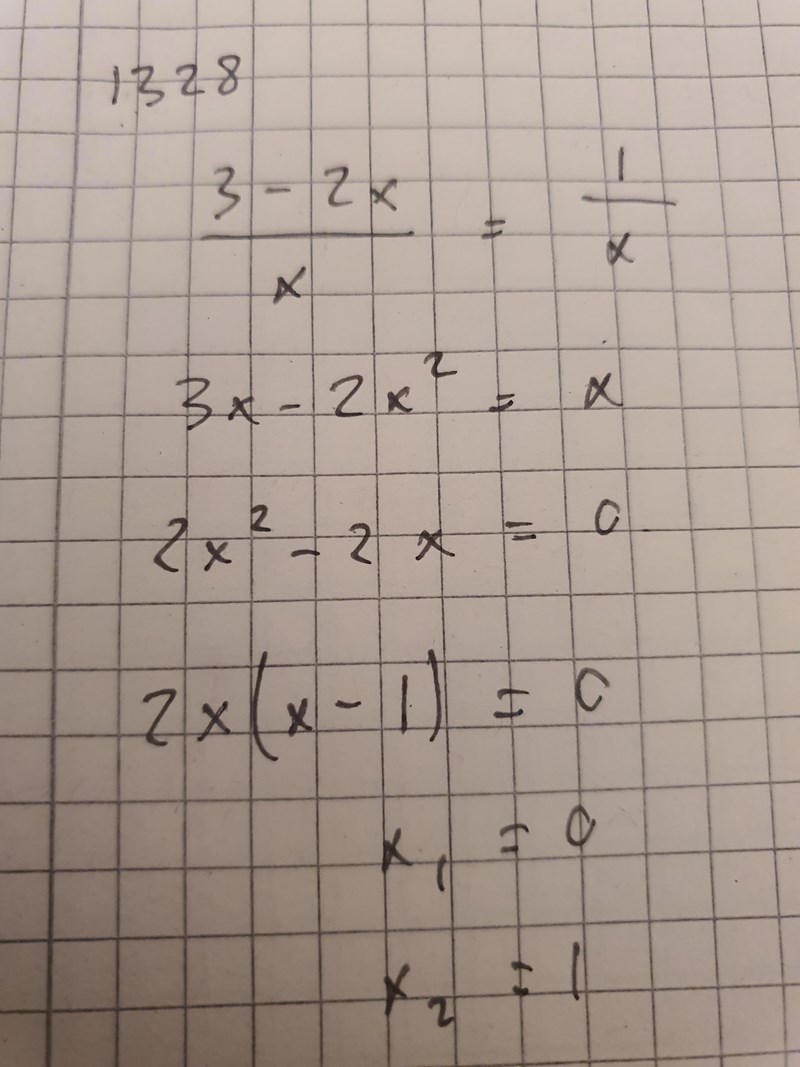 1328
(3 - 2x)/x = 1/x
3x - 2x² = x
2x² - 2x = 0
2x(x - 1) = 0
x₁ = 0
x₂ = 1